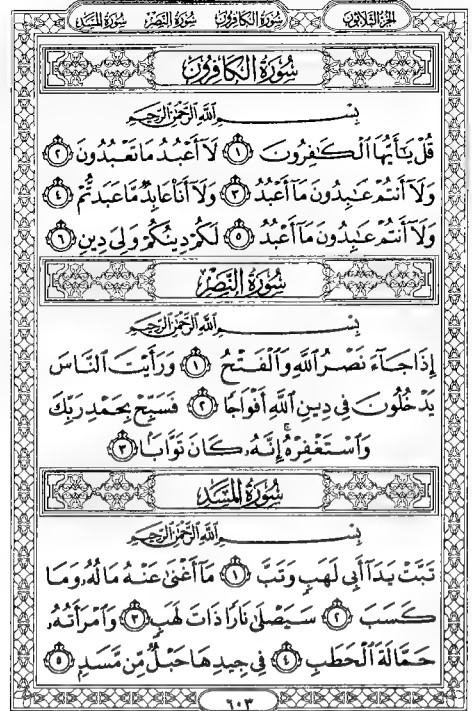 الجزء الثلاثون سورة الكافرون سورة النصر سورة المسد
سُورَةُ الكافِرُون
بِسْمِ اللَّهِ الرَّحْمَٰنِ الرَّحِيمِ
قُلْ يَٰٓأَيُّهَا ٱلْكَٰفِرُونَ ١ لَآ أَعْبُدُ مَا تَعْبُدُونَ ٢
وَلَآ أَنتُمْ عَٰبِدُونَ مَآ أَعْبُدُ ٣ وَلَآ أَنَا۠ عَابِدٌ مَّا عَبَدتُّمْ ٤
وَلَآ أَنتُمْ عَٰبِدُونَ مَآ أَعْبُدُ ٥ لَكُمْ دِينُكُمْ وَلِىَ دِينِ ٦
سُورَةُ النَّصْر
بِسْمِ اللَّهِ الرَّحْمَٰنِ الرَّحِيمِ
إِذَا جَآءَ نَصْرُ ٱللَّهِ وَٱلْفَتْحُ ١ وَرَأَيْتَ ٱلنَّاسَ
يَدْخُلُونَ فِى دِينِ ٱللَّهِ أَفْوَاجًا ٢ فَسَبِّحْ بِحَمْدِ رَبِّكَ
وَٱسْتَغْفِرْهُ ۚ إِنَّهُۥ كَانَ تَوَّابًۢا ٣
سُورَةُ المَسَد
بِسْمِ اللَّهِ الرَّحْمَٰنِ الرَّحِيمِ
تَبَّتْ يَدَآ أَبِى لَهَبٍ وَتَبَّ ١ مَآ أَغْنَىٰ عَنْهُ مَالُهُۥ وَمَا
كَسَبَ ٢ سَيَصْلَىٰ نَارًا ذَاتَ لَهَبٍ ٣ وَٱمْرَأَتُهُۥ
حَمَّالَةَ ٱلْحَطَبِ ٤ فِى جِيدِهَا حَبْلٌ مِّن مَّسَدٍۭ ٥
٦٠٣